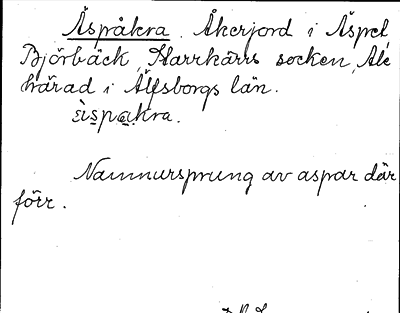 Äspåkra. Åkerjord i Äspet,
Björbäck, Starrkärrs socken, Ale
härad i Älfsborgs län.
Namnursprung av aspar där
förr.